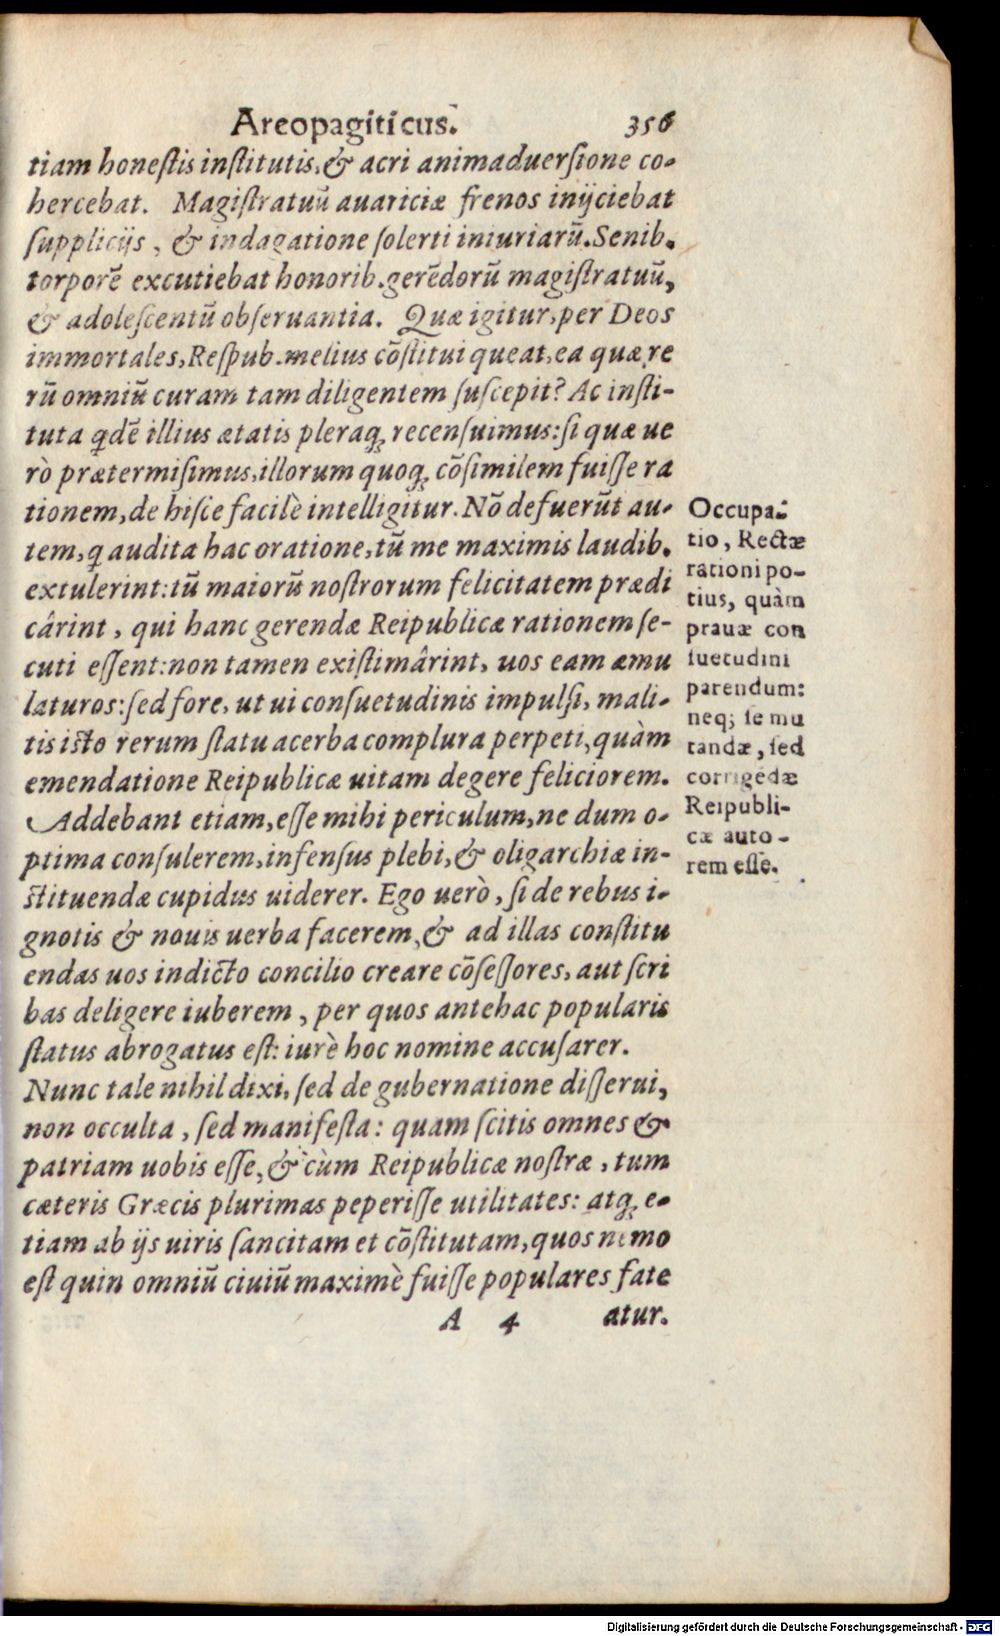 Areopagiticus. 356
tiam honeſtis inſtitutis, & acri animaduerſione co-
hercebat. Magiſtratuū auariciæ frenos inijciebat
ſupplicijs, & indagatione ſolerti iniuriarū. Senib.
torporē excutiebat honorib. gerēdorū magiſtratuū,
& adoleſcentū obſeruantia. Quæ igitur, per Deos
immortales, Reſpub. melius cōſtitui queat, ea quæ re
rū omniū curam tam diligentem ſuſcepit? Ac inſti-
tuta q̃dē illius ætatis pleraq; recenſuimus: ſi quæ ue
rò prætermiſimus, illorum quoq; cōſimilem fuiſſe ra
tionem, de hiſce facilè intelligitur. Nō defuerūt au-
tem, q̃ audita hac oratione, tū me maximis laudib.
extulerint: tū maiorū noſtrorum felicitatem prædi
cârint, qui hanc gerendæ Reipublicæ rationem ſe-
cuti eſſent: non tamen exiſtimârint, uos eam æmu
laturos: ſed fore, ut ui conſuetudinis impulſi, mali-
tis iſto rerum ſtatu acerba complura perpeti, quàm
emendatione Reipublicæ uitam degere feliciorem.
Addebant etiam, eſſe mihi periculum, ne dum o-
ptima conſulerem, infenſus plebi, & oligarchiæ in-
ſtituendæ cupidus uiderer. Ego uerò, ſi de rebus i-
gnotis & nouis uerba facerem, & ad illas conſtitu
endas uos indicto concilio creare cōſeſſores, aut ſcri
bas deligere iuberem, per quos antehac popularis
ſtatus abrogatus eſt: iurè hoc nomine accuſarer.
Nunc tale nihil dixi, ſed de gubernatione diſſerui,
non occulta, ſed manifeſta: quam ſcitis omnes &
patriam uobis eſſe, & cùm Reipublicæ noſtræ, tum
cæteris Græcis plurimas peperiſſe utilitates: atq; e-
tiam ab ijs uiris ſancitam et cōſtitutam, quos nemo
eſt quin omniū ciuiū maximè fuiſſe populares fate
A 4 atur.
Occupa-
tio, Rectæ
rationi po-
tius, quàm
prauæ con
ſuetudini
parendum:
neq; ſe mu
tandæ, ſed
corrigēdæ
Reipubli-
cæ auto-
rem eſſe.
Digitalisierung gefördert durch die Deutsche Forschungsgemeinschaft - DFG